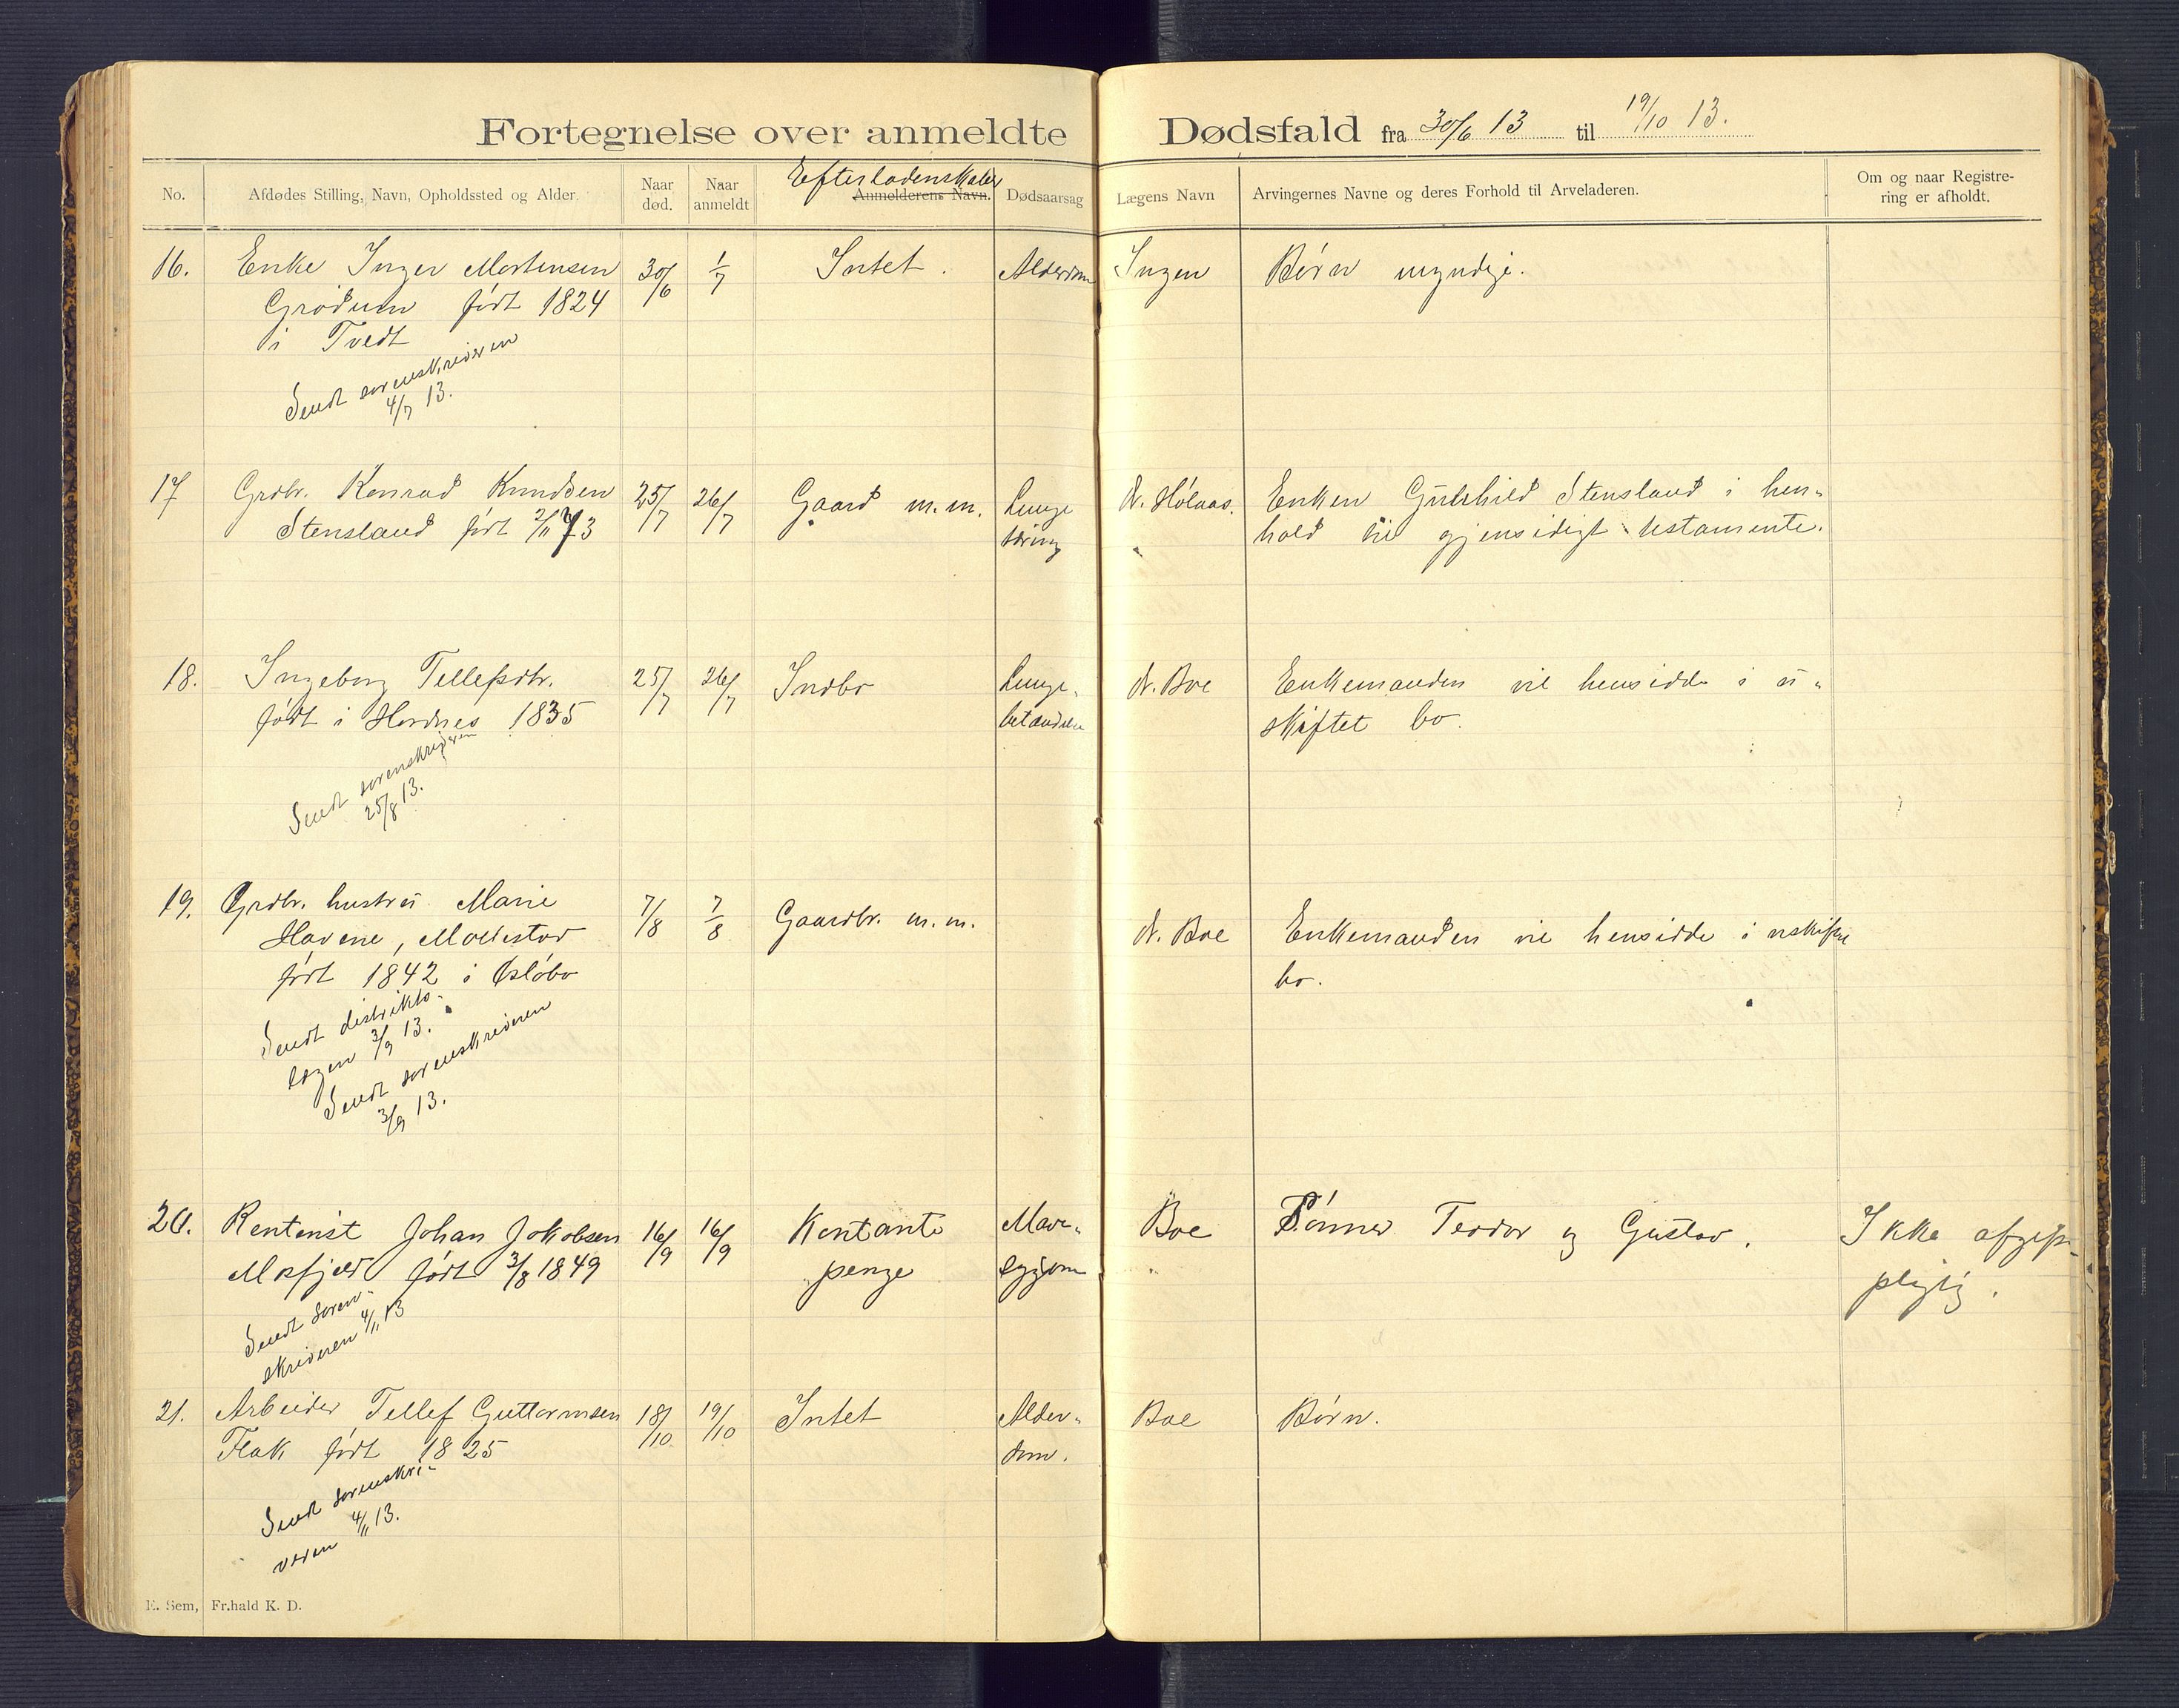 Fortegnelse over anmeldte Dødsfald fra 30/6 13 til 19/10 13.
No.
Afdødes Stilling, Navn, Opholdssted og Alder.
Naar død.
Naar anmeldt
Efterladenskaber
Anmelderens Navn.
Dødsaarsag
Lægens Navn
Arvingernes Navne og deres Forhold til Arveladeren.
Om og naar Registre-
ring er afholdt.
16. Enke Inger Mortensen 30/6 1/7 Intet. Alderdom Ingen Børn myndige.
Grødum født 1824
i Tvedt
Sendt sorenskriveren
4/7 13.
17 Grdbr. Konrad Knudsen 25/7 26/7 Gaard m.m. Lunge Dr. Hølaas. Enken Gunhild Stensland i hen-
Stensland født 2/11 73 tæring hold til gjensidigt testamente.
18. Ingeborg Tellefsdtr. 25/7 26/7 Indbo Lunge- Dr. Boe Enkemanden vil hensidde i u-
født i Herdnes 1835 betændelse skiftet bo.
Sendt sorenskriveren
25/8 13.
19. Grdbr. hustru Marie 7/8 7/8 Gaardbr. m.m. Dr. Boe Enkemanden vil hensidde i uskiftet
Havene, Mollestad bo.
født 1842 i Osløbo
Sendt distrikts-
lægen 3/9 13.
Sendt sorenskriveren
3/9 13.
20. Rentenist Johan Jakobsen 16/9 16/9 Kontante Mave- Boe Sønner Teodor og Gustav. Ikke afgifts-
Mosfjeld født 3/8 1849 penge sygdom pligtig.
Sendt soren-
skriveren 4/11 13
21. Arbeider Tellef Guttormsen 18/10 19/10 Intet Alder- Boe Børn.
Flak født 1825 dom.
Sendt sorenskri-
veren 4/11 13.
E. Sem, Fr.hald K. D.